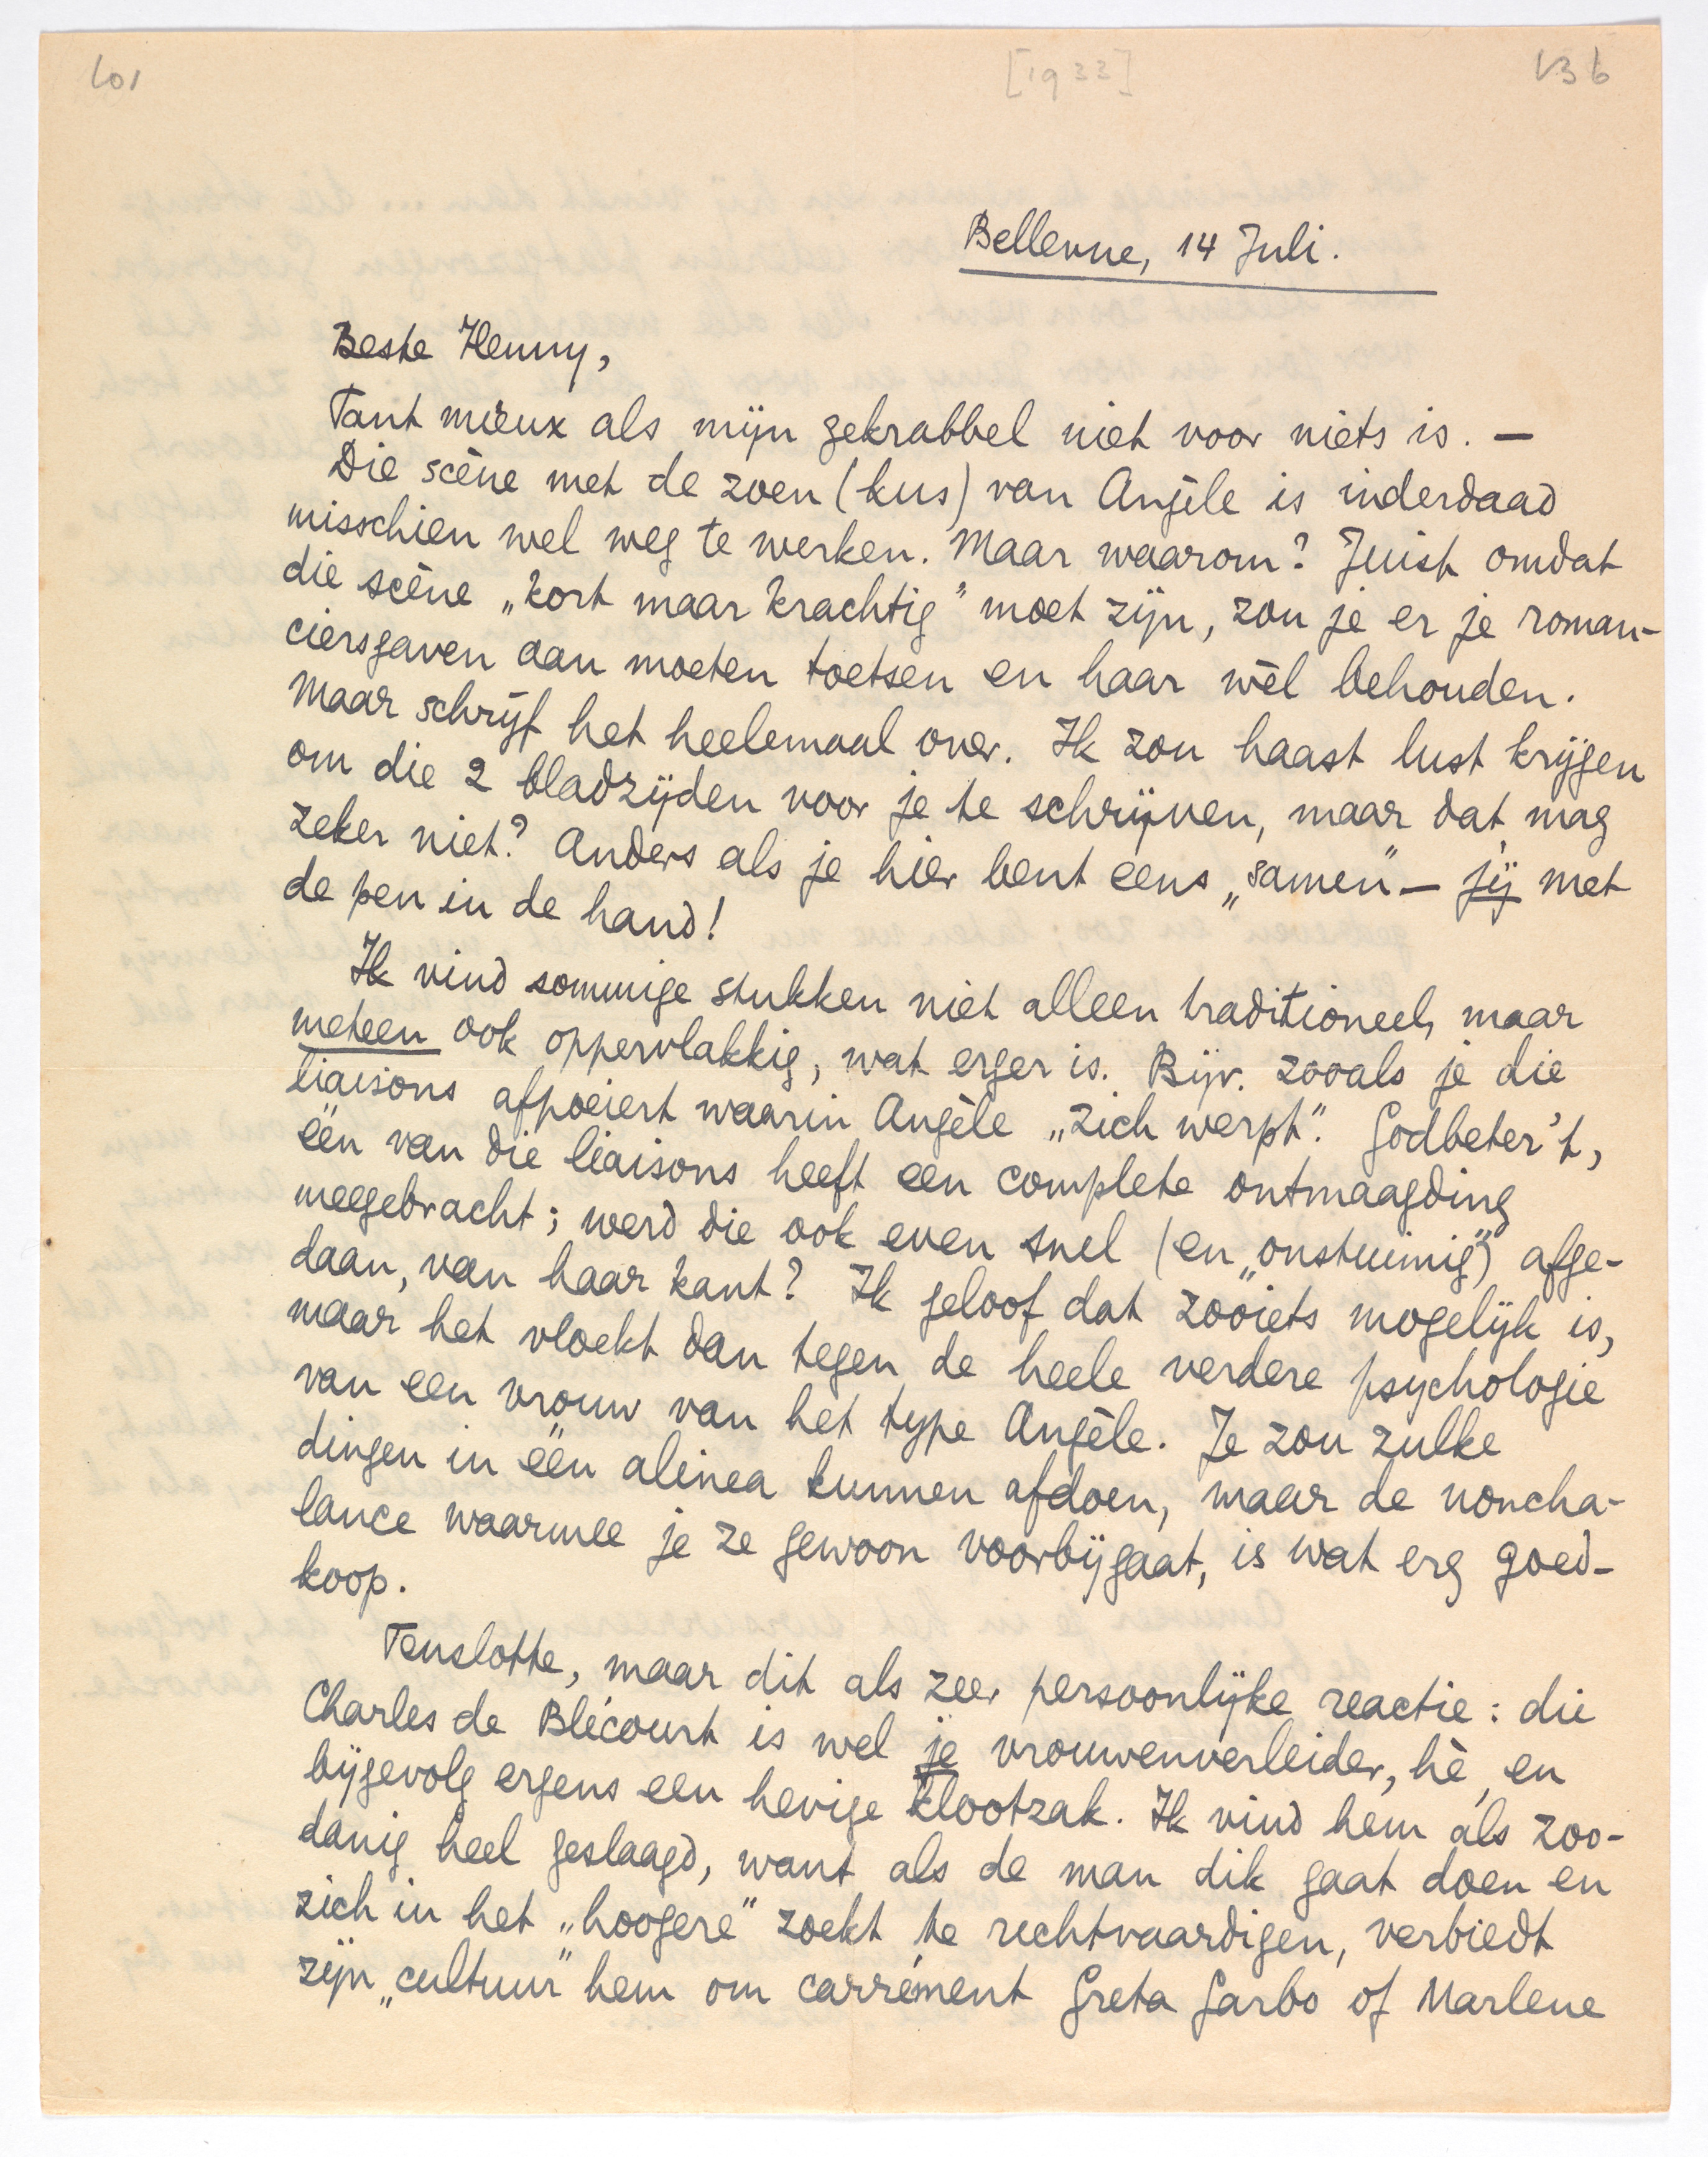 601 [1933] 136
Bellevue, 14 Juli.
Beste Henny,
Tant mieux als mijn gekrabbel niet voor niets is. —
Die scène met de zoen (kus) van Angèle is inderdaad
misschien wel weg te werken. Maar waarom? Juist omdat
die scène „kort maar krachtig” moet zijn, zou je er je roman-
ciersgaven aan moeten toetsen en haar wèl behouden.
Maar schrijf het heelemaal over. Ik zou haast lust krijgen
om die 2 bladzijden voor je te schrijven, maar dat mag
zeker niet? Anders als je hier bent eens „samen” — jij met
de pen in de hand!
Ik vind sommige stukken niet alleen traditioneel, maar
meteen ook oppervlakkig, wat erger is. Bijv. zooals je die
liaisons afpoeiert waarin Angèle „zich werpt”. Godbeter't,
één van die liaisons heeft een complete ontmaagding
meegebracht; werd die ook even snel (en „onstuimig”) afge-
daan, van haar kant? Ik geloof dat zooiets mogelijk is,
maar het vloekt dan tegen de heele verdere psychologie
van een vrouw van het type Angèle. Je zou zulke
dingen in één alinea kunnen afdoen, maar de noncha-
lance waarmee je ze gewoon voorbijgaat, is wat erg goed-
koop.
Tenslotte, maar dit als zeer persoonlijke reactie: die
Charles de Blécourt is wel je vrouwenverleider, hè, en
bijgevolg ergens een hevige klootzak. Ik vind hem als zoo-
danig heel geslaagd, want als de man dik gaat doen en
zich in het „hoogere” zoekt te rechtvaardigen, verbiedt
zijn „cultuur” hem om carrément Greta Garbo of Marlene